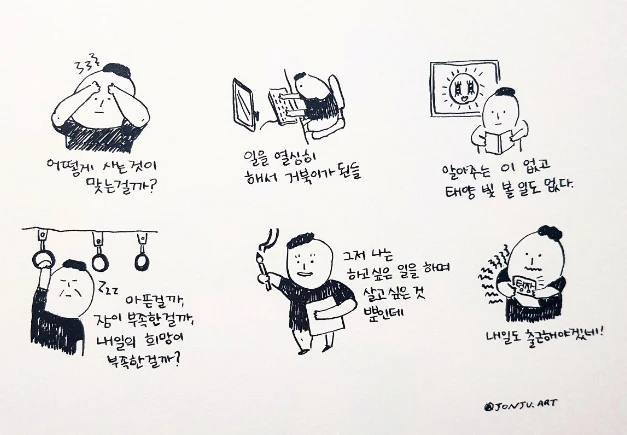 어떻게 사는것이
맞는걸까?
일을 열심히
해서 거북이가 된들
알아주는 이 없고
태양 빛 볼 일도 없다.
zzz
아픈걸까,
잠이 부족한걸까,
내일의 희망이
부족한걸까?
그저 나는
하고싶은 일을 하며
살고 싶은 것
뿐인데
텅장
내일도 출근해야겠네!
@JONJU.ART